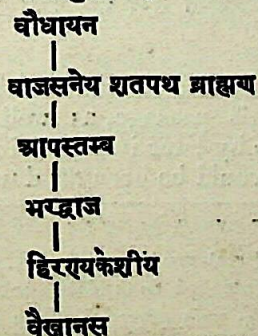 वौधायन
वाजसनेय शतपथ ब्राह्मण
आपस्तम्ब
भरद्वाज
हिरण्यकेशीय
वैखानस